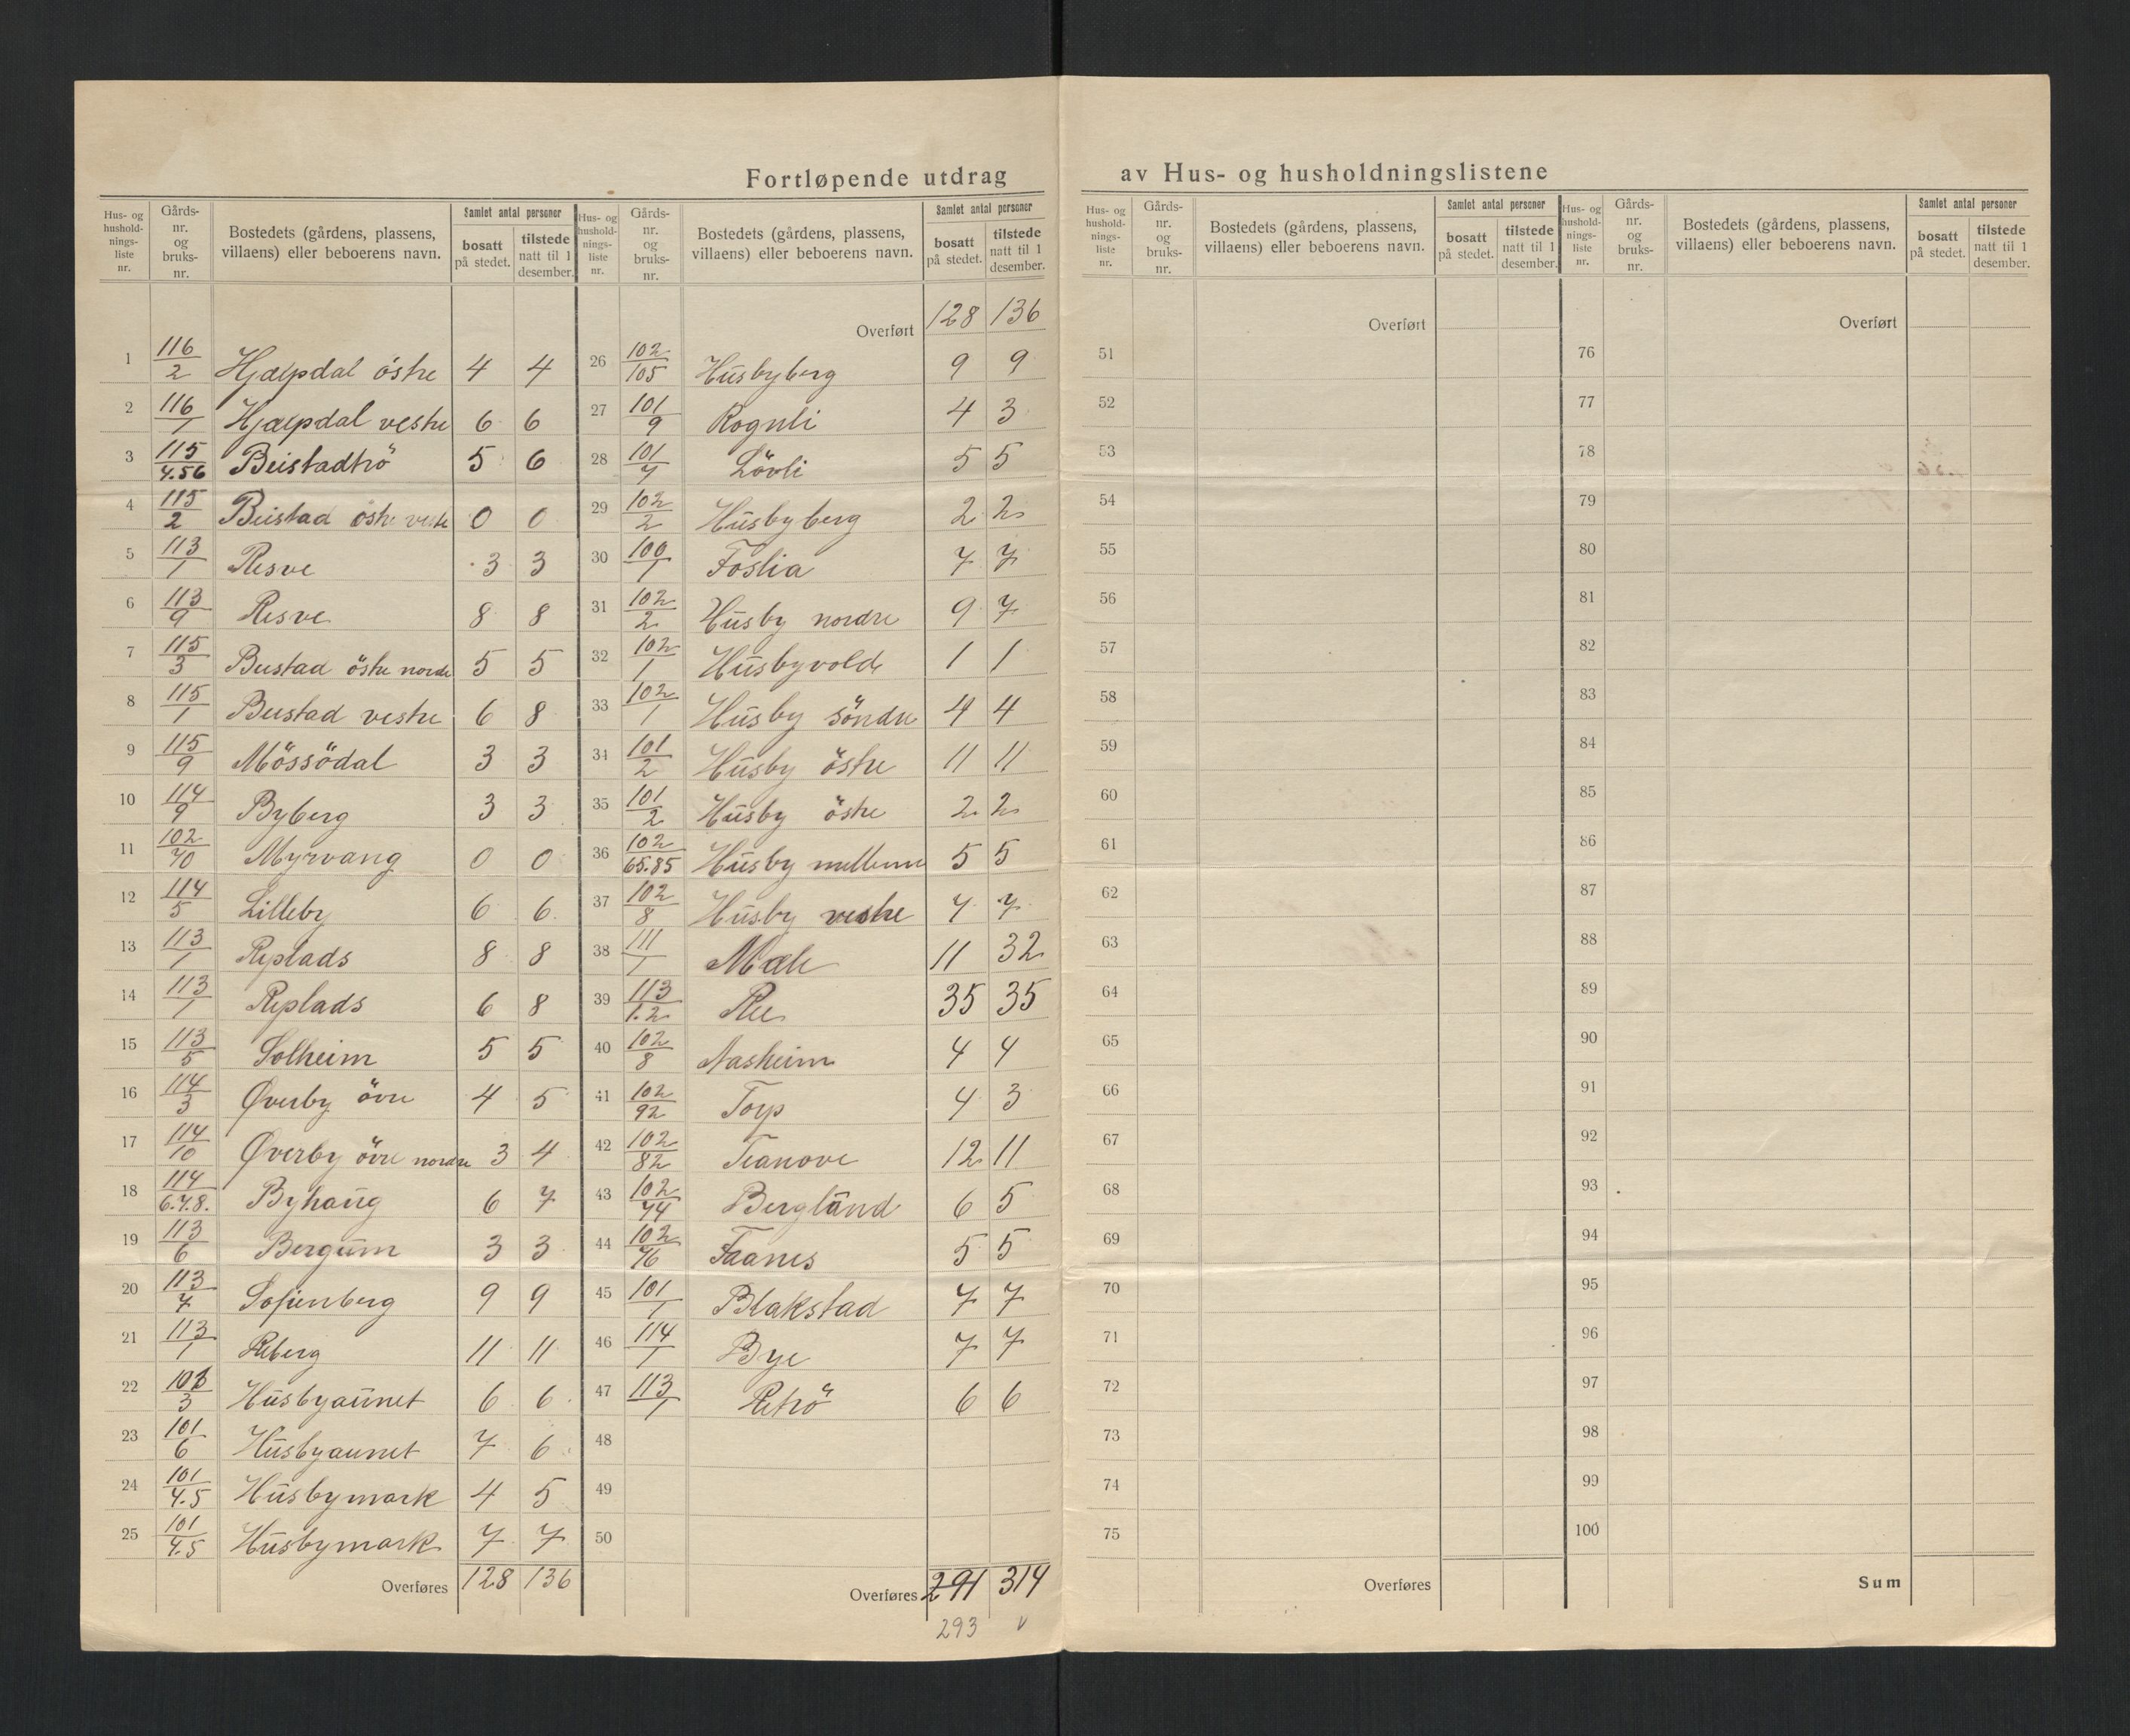 Fortløpende utdrag av Hus- og husholdningslistene
Hus- og hushold-nings-liste nr. | Gårds-nr. og bruks-nr. | Bostedets (gårdens, plassens, villaens) eller beboerens navn. | Samlet antal personer | bosatt på stedet. | tilstede natt til 1 desember.
1 116/2 Hjælpdal östre 4 4
2 116/1 Hjælpdal vestre 6 6
3 115/4.56 Beistadtrö 5 6
4 115/2 Beistad östre vestre 0 0
5 113/1 Resve 3 3
6 113/9 Resve 8 8
7 115/3 Bustad östre nordre 5 5
8 115/1 Bustad vestre 6 8
9 115/9 Mössödal 3 3
10 114/9 Byberg 3 3
11 102/70 Myrvang 0 0
12 114/5 Lilleby 6 6
13 113/1 Replads 8 8
14 113/1 Replads 6 8
15 113/5 Solheim 5 5
16 114/3 Øverby övre 4 5
17 114/10 Øverby övre nordre 3 4
18 114/6.7.8. Byhaug 6 7
19 113/6 Bergum 3 3
20 113/7 Sofienberg 9 9
21 113/1 Reberg 11 11
22 101/3 Husbyaunet 6 6
23 101/6 Husbyaunet 7 6
24 101/4.5 Husbymark 4 5
25 101/4.5 Husbymark 7 7
Overføres 128 136
Hus- og hushold-nings-liste nr. | Gårds-nr. og bruks-nr. | Bostedets (gårdens, plassens, villaens) eller beboerens navn. | Samlet antal personer | bosatt på stedet. | tilstede natt til 1 desember.
Overført 128 136
26 102/105 Husbyberg 9 9
27 101/9 Rognli 4 3
28 101/7 Lövli 5 5
29 102/2 Husbyberg 2 2
30 100/1 Foslia 7 7
31 102/2 Husby nordre 9 7
32 102/1 Husbyvold 1 1
33 102/1 Husby söndre 4 4
34 101/2 Husby östre 11 11
35 101/2 Husby östre 2 2
36 102/65.85 Husby mellem 5 5
37 102/8 Husby vestre 7 7
38 111/1 Mæle 11 32
39 113/1.2 Ree 35 35
40 102/8 Aasheim 4 4
41 102/92 Torp 4 3
42 102/82 Teanove 12 11
43 102/74 Bergland 6 5
44 102/76 Faanes 5 5
45 101/1 Blakstad 7 7
46 114/1 Bye 7 7
47 113/1 Retrö 6 6
48
49
50
Overføres 291 314
293 v
Hus- og hushold-nings-liste nr. | Gårds-nr. og bruks-nr. | Bostedets (gårdens, plassens, villaens) eller beboerens navn. | Samlet antal personer | bosatt på stedet. | tilstede natt til 1 desember.
Overført
51
52
53
54
55
56
57
58
59
60
61
62
63
64
65
66
67
68
69
70
71
72
73
74
75
Overføres
Hus- og hushold-nings-liste nr. | Gårds-nr. og bruks-nr. | Bostedets (gårdens, plassens, villaens) eller beboerens navn. | Samlet antal personer | bosatt på stedet. | tilstede natt til 1 desember.
Overført
76
77
78
79
80
81
82
83
84
85
86
87
88
89
90
91
92
93
94
95
96
97
98
99
100
Sum